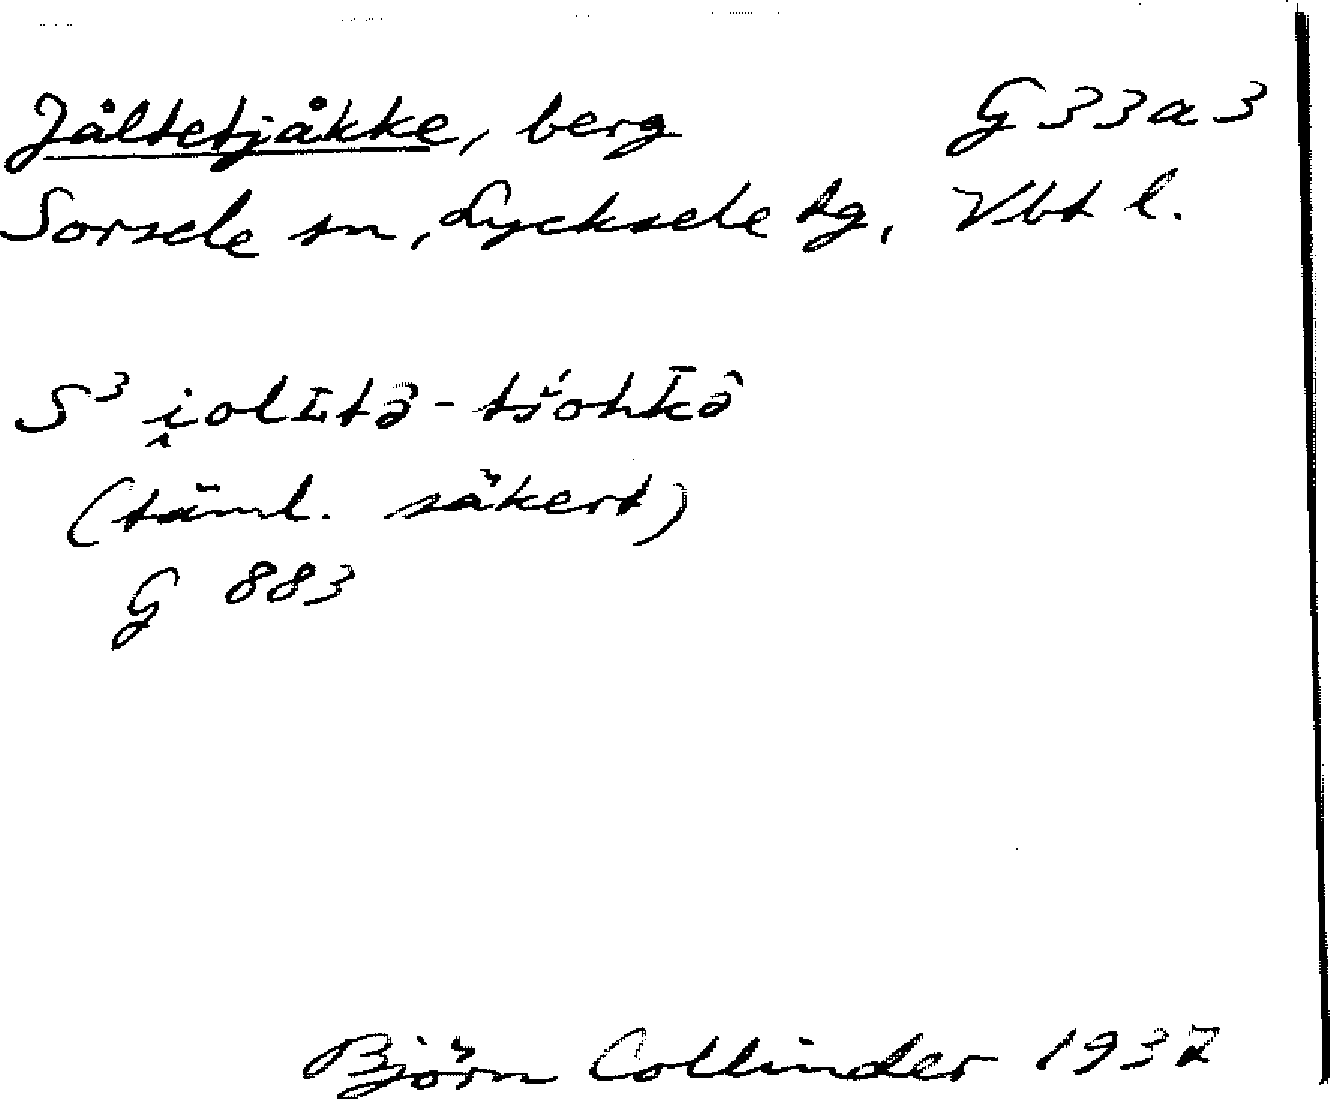 Jåltetjåkke, berg G 33 a 3
Sorsele sn, Lycksele tg, Vbt l.
S³ i̯olɪtə̑ - tśohkə̑
(täml. säkert)
G 883
Björn Collinder 1937